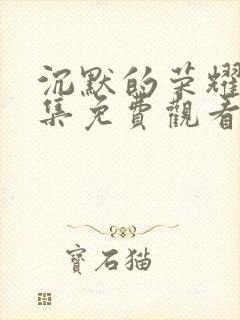 沉默的荣耀
集免費觀看
寶石猫